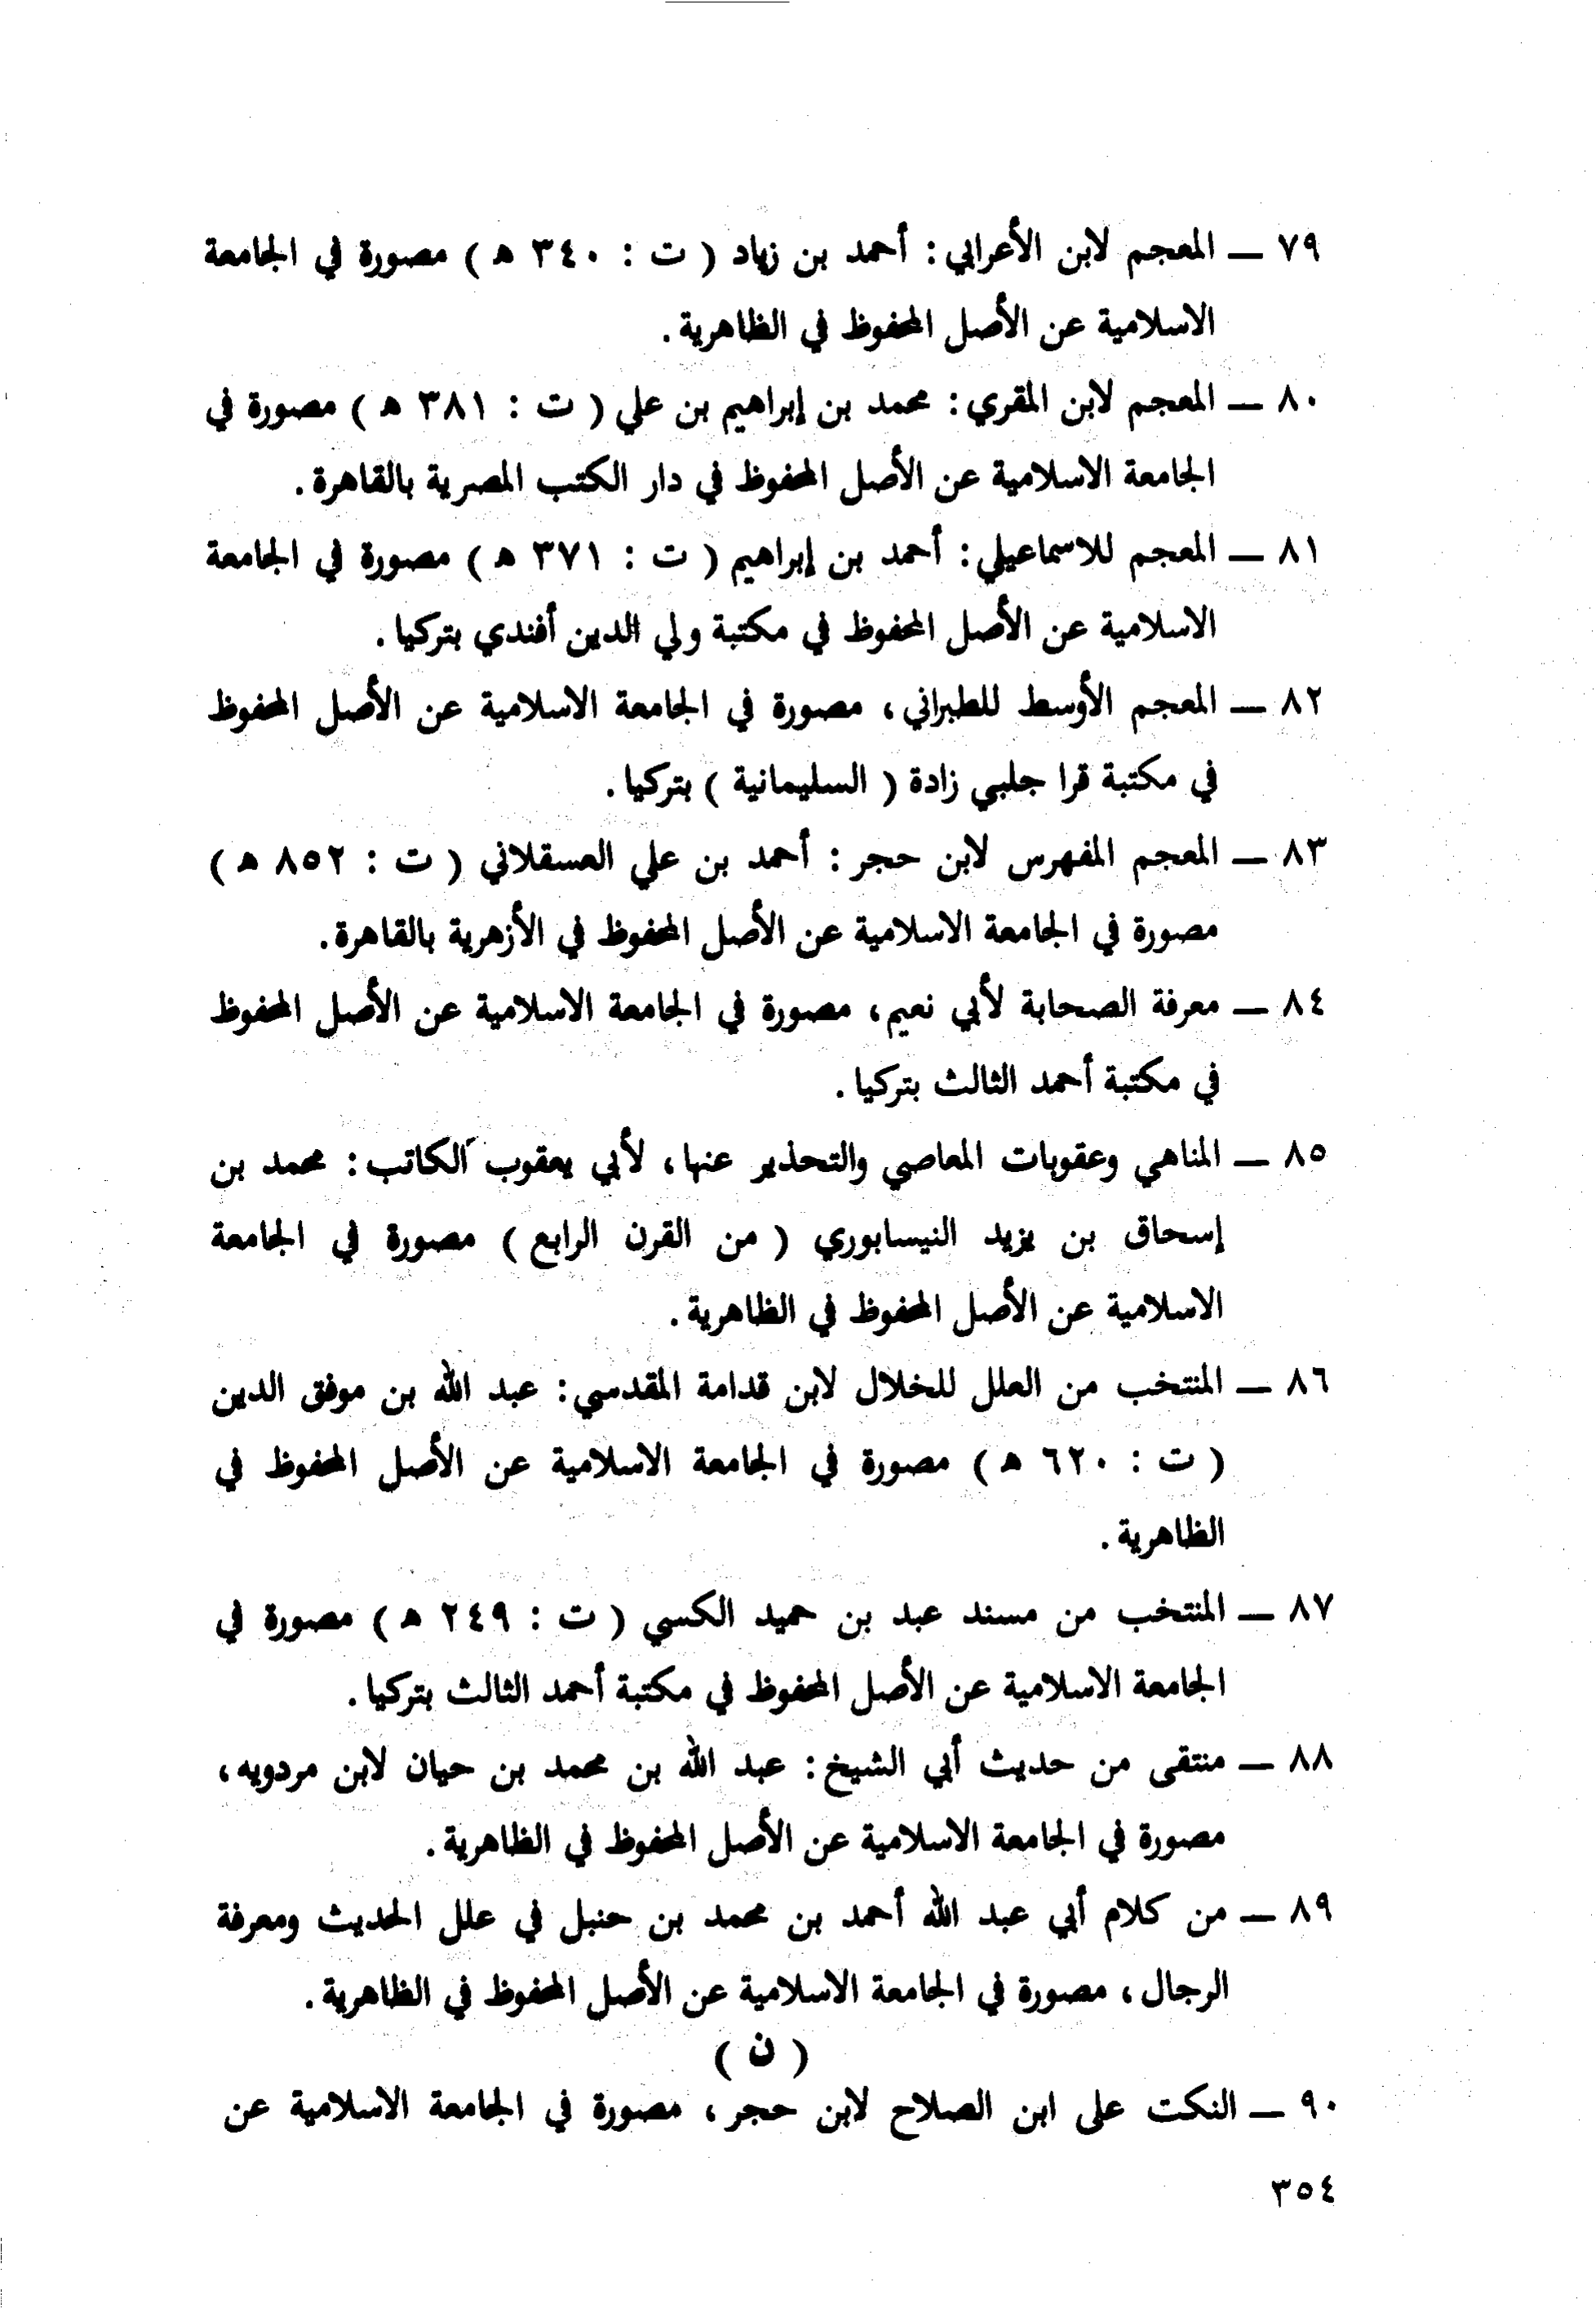 ٧٩ — المعجم لابن الأعرابي: أحمد بن زياد ( ت : ٣٤٠ ه ) مصورة في الجامعة
الاسلامية عن الأصل المحفوظ في الظاهرية.
٨٠ — المعجم لابن المقري: محمد بن إبراهيم بن علي ( ت : ٣٨١ ه ) مصورة في
الجامعة الاسلامية عن الأصل المحفوظ في دار الكتب المصرية بالقاهرة.
٨١ — المعجم للاسماعيلي: أحمد بن إبراهيم ( ت : ٣٧١ ه ) مصورة في الجامعة
الاسلامية عن الأصل المحفوظ في مكتبة ولي الدين أفندي بتركيا.
٨٢ — المعجم الأوسط للطبراني، مصورة في الجامعة الاسلامية عن الأصل المحفوظ
في مكتبة قرا جلبي زادة ( السليمانية ) بتركيا.
٨٣ — المعجم المفهرس لابن حجر : أحمد بن علي العسقلاني ( ت : ٨٥٢ ه )
مصورة في الجامعة الاسلامية عن الأصل المحفوظ في الأزهرية بالقاهرة.
٨٤ — معرفة الصحابة لأبي نعيم، مصورة في الجامعة الاسلامية عن الأصل المحفوظ
في مكتبة أحمد الثالث بتركيا.
٨٥ — المناهي وعقوبات المعاصي والتحذير عنها، لأبي يعقوب الكاتب: محمد بن
إسحاق بن يزيد النيسابوري ( من القرن الرابع ) مصورة في الجامعة
الاسلامية عن الأصل المحفوظ في الظاهرية.
٨٦ — المنتخب من العلل للخلال لابن قدامة المقدسي: عبد الله بن موفق الدين
( ت : ٦٢٠ ه ) مصورة في الجامعة الاسلامية عن الأصل المحفوظ في
الظاهرية.
٨٧ — المنتخب من مسند عبد بن حميد الكسي ( ت : ٢٤٩ ه ) مصورة في
الجامعة الاسلامية عن الأصل المحفوظ في مكتبة أحمد الثالث بتركيا.
٨٨ — منتقى من حديث أبي الشيخ: عبد الله بن محمد بن حيان لابن مردويه،
مصورة في الجامعة الاسلامية عن الأصل المحفوظ في الظاهرية.
٨٩ — من كلام أبي عبد الله أحمد بن محمد بن حنبل في علل الحديث ومعرفة
الرجال، مصورة في الجامعة الاسلامية عن الأصل المحفوظ في الظاهرية.
( ن )
٩٠ — النكت على ابن الصلاح لابن حجر، مصورة في الجامعة الاسلامية عن
٣٥٤